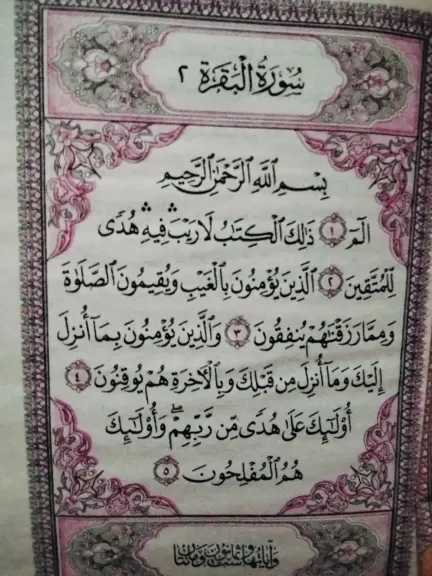 سُورَةُ الْبَقَرَةِ ٢
بِسْمِ اللَّهِ الرَّحْمَٰنِ الرَّحِيمِ
الٓمٓ ١ ذَٰلِكَ الْكِتَٰبُ لَا رَيْبَ ۛ فِيهِ ۛ هُدًى
لِّلْمُتَّقِينَ ٢ الَّذِينَ يُؤْمِنُونَ بِالْغَيْبِ وَيُقِيمُونَ الصَّلَوٰةَ
وَمِمَّا رَزَقْنَٰهُمْ يُنفِقُونَ ٣ وَالَّذِينَ يُؤْمِنُونَ بِمَآ أُنزِلَ
إِلَيْكَ وَمَآ أُنزِلَ مِن قَبْلِكَ وَبِالْأَخِرَةِ هُمْ يُوقِنُونَ ٤
أُوْلَٰٓئِكَ عَلَىٰ هُدًى مِّن رَّبِّهِمْ ۖ وَأُوْلَٰٓئِكَ
هُمُ الْمُفْلِحُونَ ٥
وَآيَاتُهَا وَمِئَتَانِ